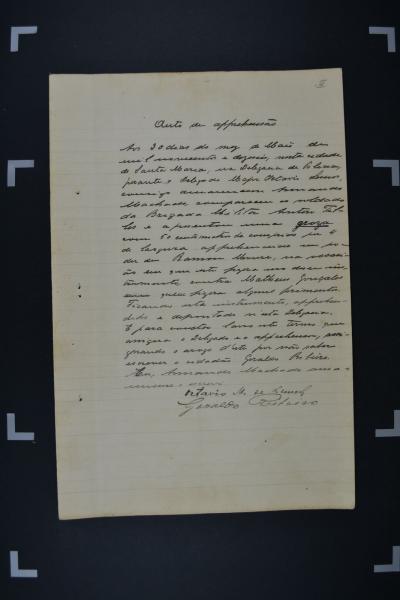 Auto de apprehensão
Aos 30 dias do mez de Maio de
mil novecentos e dezeseis, nesta cidade
de Santa Maria, na Delegacia de Policia,
perante o Delegado Major Octavio Lemos,
comigo amanuense Armando
Machado compareceu o soldado
da Brigada Militar Antão
e apresentou uma
com 50 centimetros de comprimento
de largura apprehendida em po-
der de Ramão na occasi-
ão em que este
contra Matheus Gonçalves
em quem fizera alguns ferimentos.
Ficando este instrumento apprehen-
dido e depositado nesta Delegacia.
E para constar lavro este termo que
assigna o Delegado e o apprehensor, assi-
gnando a rogo deste por não saber
escrever o cidadão Geraldo Ribeiro.
Eu, Armando Machado ama-
nuense o escrevi.
Octavio de Lemos
Geraldo Ribeiro